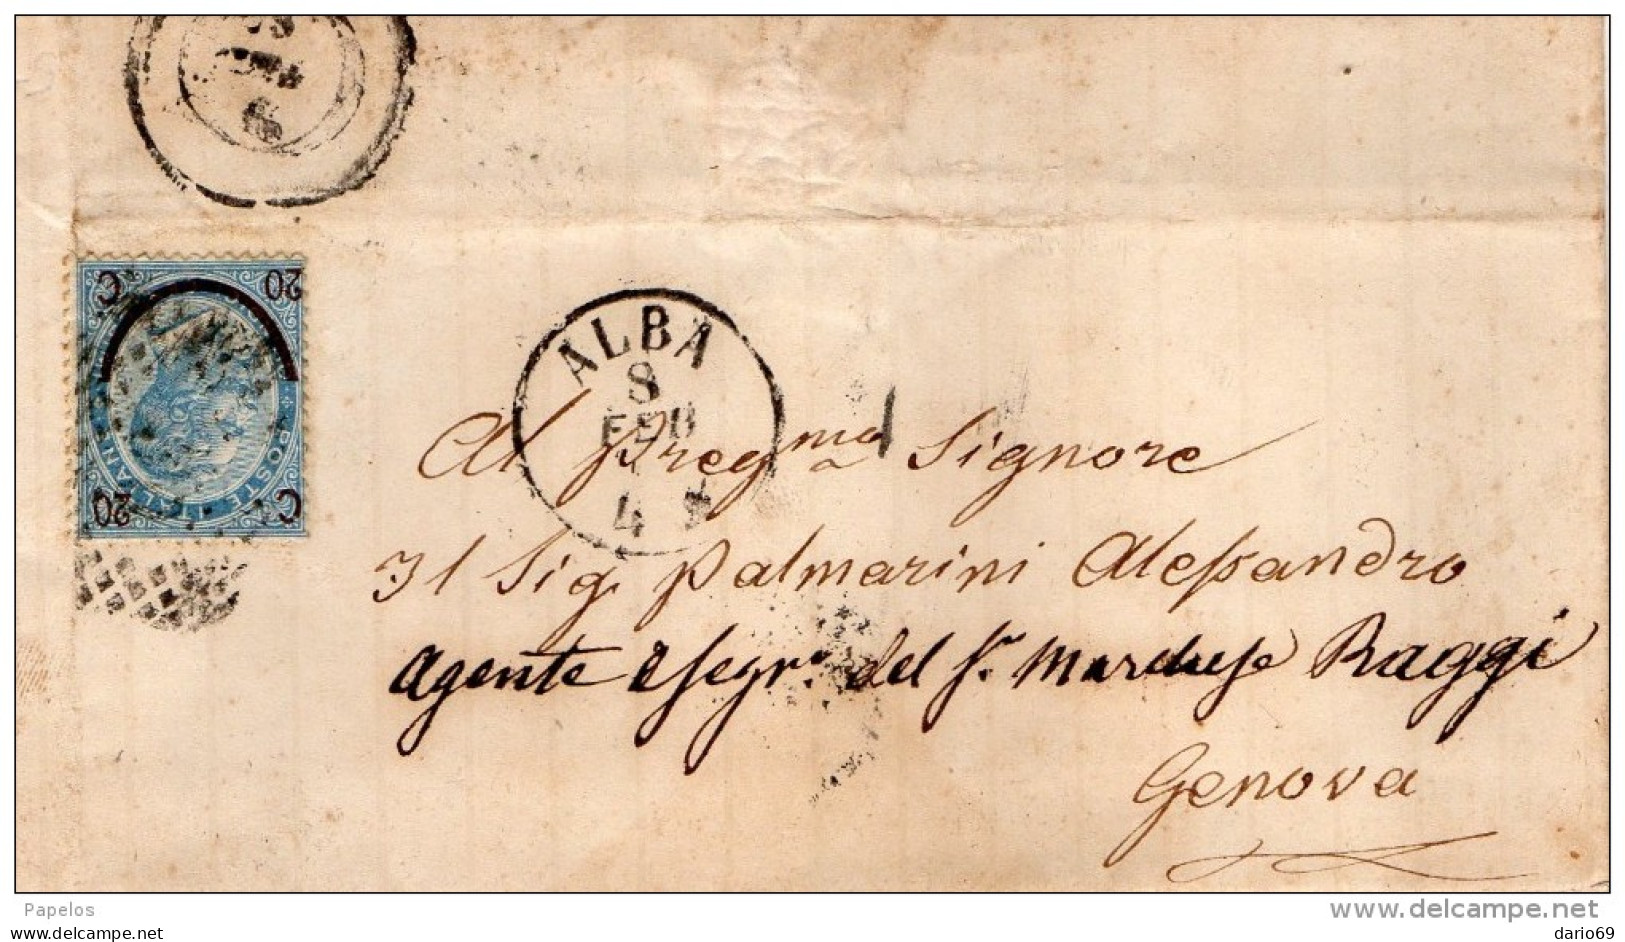 C 20
POSTE ITALIANE
20 C
ALBA
8
FEB
4 S
Al Pregmo Signore
Il Sig. Palmarini Alessandro
Agente e Segro. del Sr. Marchese Raggi
Genova
Papelos
www.delcampe.net
dario69